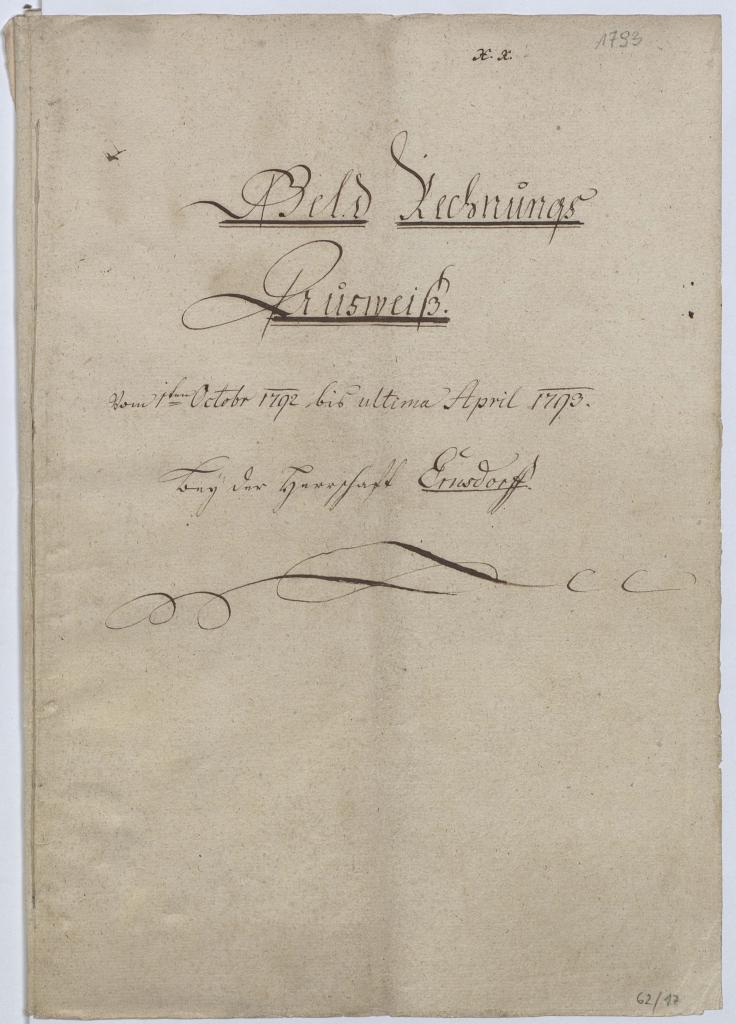 1793
X. X.
Geld Rechnungs
Ausweiß.
Vom 1ten Octobr 1792 bis ultima April 1793.
bey der Herrschaft Ernsdorff.
62/17